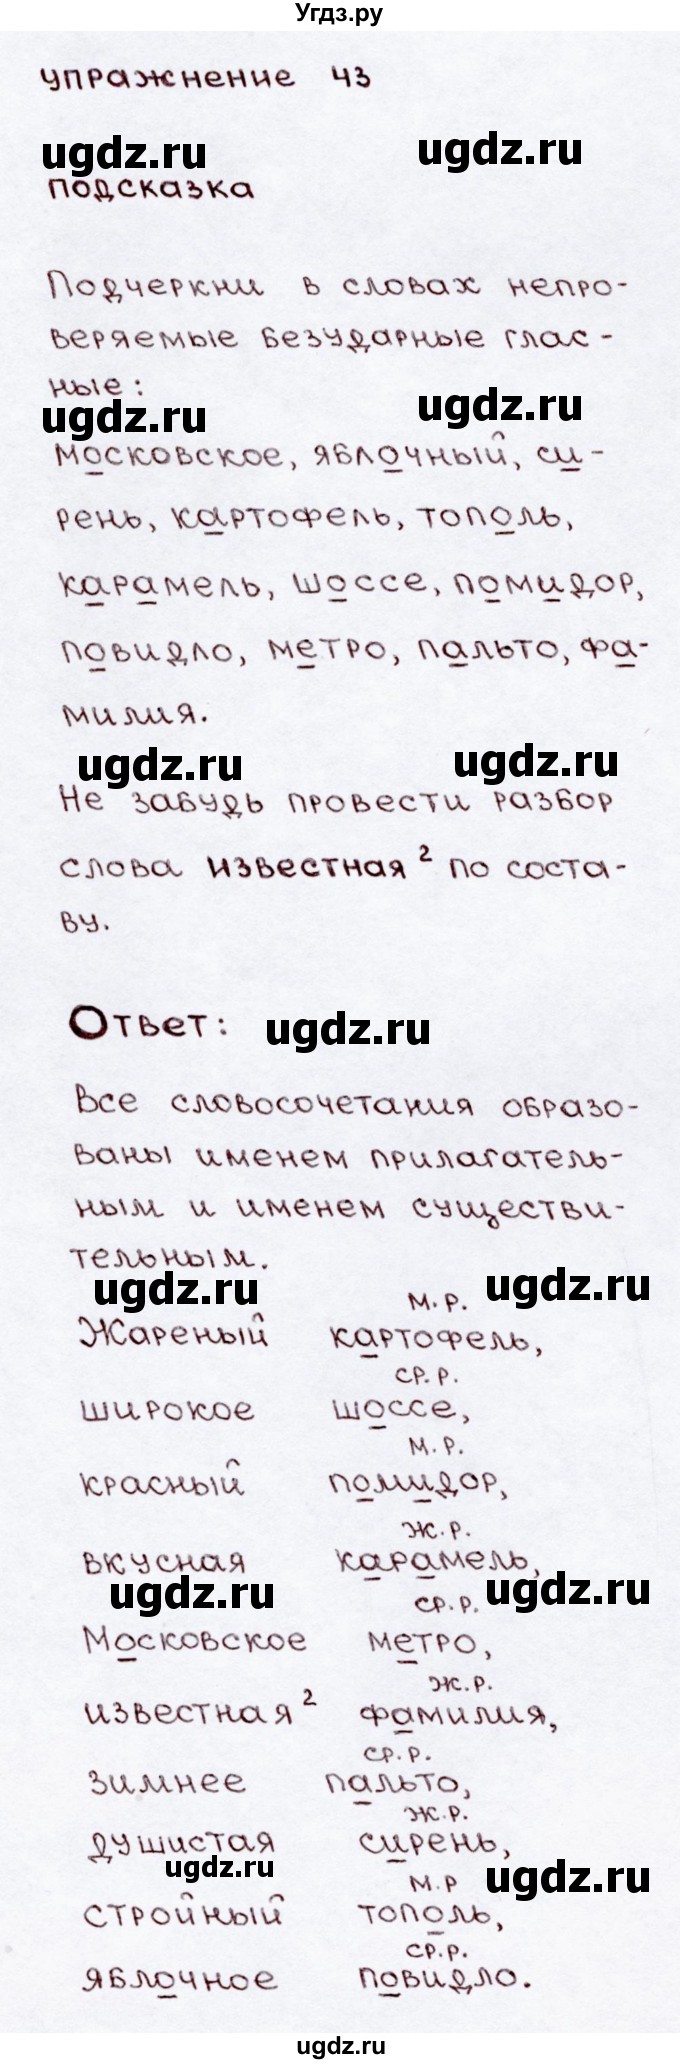 Угдз.ру
упражнение 43
ugdz.ru ugdz.ru
подсказка
Подчеркни в словах непро-
веряемые безударные глас-
ные:
ugdz.ru ugdz.ru
московское, яблочный, си-
рень, картофель, тополь,
карамель, шоссе, помидор,
повидло, метро, пальто, фа-
милия.
ugdz.ru ugdz.ru
Не забудь провести разбор
слова известная² по соста-
ву.
Ответ: ugdz.ru
Все словосочетания образо-
ваны именем прилагатель-
ным и именем существи-
тельным.
ugdz.ru ugdz.ru
м.р.
Жареный картофель,
ср.р.
широкое шоссе,
м.р.
красный помидор,
ж.р.
вкусная карамель,
ugdz.ru ugdz.ru
ср.р.
Московское метро,
ж.р.
известная² фамилия,
ср.р.
зимнее пальто,
ж.р.
душистая сирень,
ugdz.ru ugdz.ru
м.р
стройный тополь,
ср.р.
яблочное повидло.
ugdz.ru